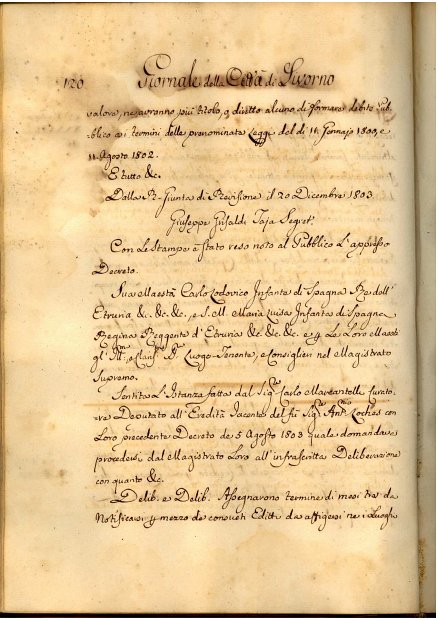 120 Giornale della Città di Livorno
valore, ne avranno più titolo, o diritto alcuno di formare debito Pub-
blico ai termini della prenominata Legge del dì 11. Gennajo 1800, e
11. Agosto 1802.
E tutto &c.
Dalla R. Giunta di Revisione il 20 Dicembre 1803.
Giuseppe Grifaldi Taja Segret.
Con le Stampe è stato reso noto al Pubblico l'appresso
Decreto.
Sua Maestà Carlo Lodovico Infante di Spagna Re dell'
Etruria &c. &c. &c., e S. M. Maria Luisa Infanta di Spagna
Regina Reggente d'Etruria &c. &c. &c. e p. Le Loro Maestà
gl' Ill.mi, e Clariss.mi SS.ri Luogo-Tenente, e Consiglieri nel Magistrato
Supremo.
Sentita l'Istanza fatta dal Sig. Carlo Mareantelli Curato-
re Deputato all'Eredità Jacente del fù Sig. Ant. Coches con
Loro precedente Decreto de 5 Agosto 1803 quale domandava
procedersi dal Magistrato Loro all'infrascritta Deliberazione
con quanto &c.
Delib. e Delib. Assegnarono termine di mesi tre da
Notificarsi p. mezzo de consueti Editti da affigersi nei Luoghi